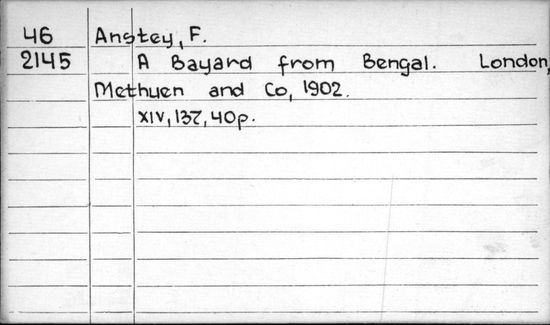 46 Anstey, F.
2145 A Bayard from Bengal. London,
Methuen and Co, 1902.
XIV, 137, 40p.